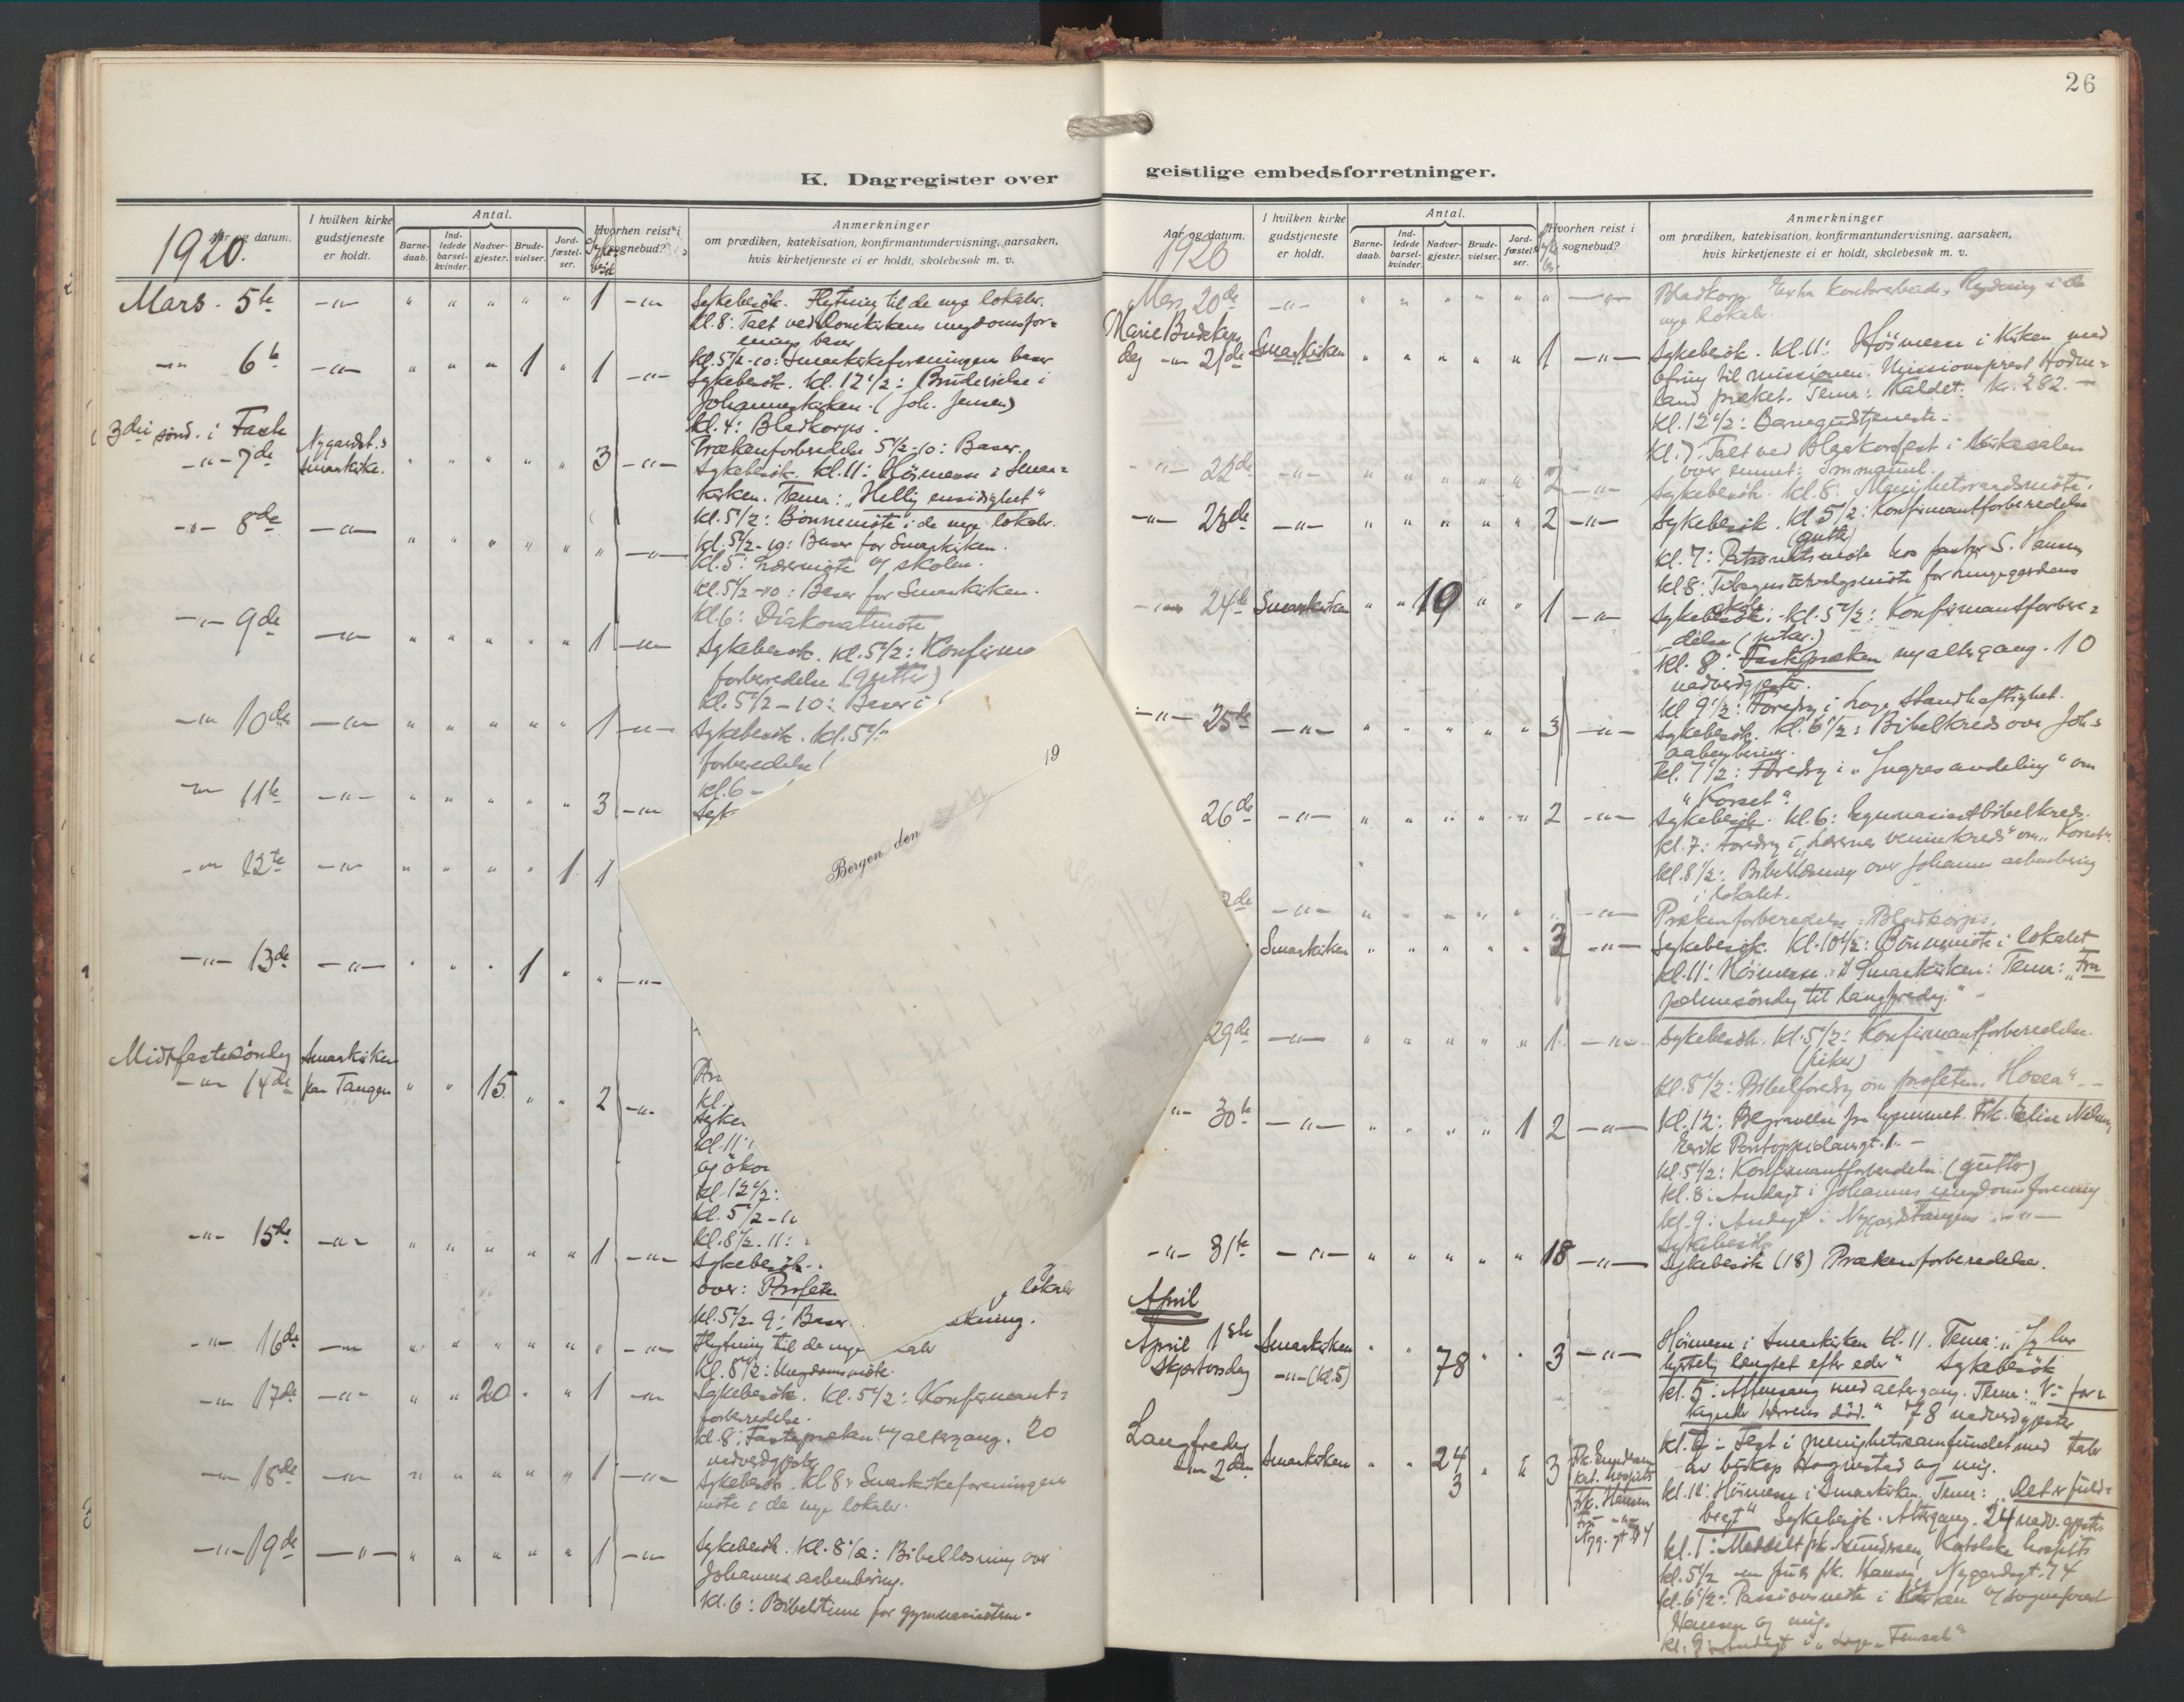 26
K. Dagregister over
geistlige embedsforretninger.
1920.
Aar og datum.
I hvilken kirke
gudstjeneste
er holdt.
Antal.
Barne-
daab.
Ind-
ledede
barsel-
kvinder.
Nadver-
gjester.
Brude-
vielser.
Jord-
fæstel-
ser.
Hvorhen reist i
sognebud?
Anmerkninger
om prædiken, katekisation, konfirmantundervisning, aarsaken,
hvis kirketjeneste ei er holdt, skolebesøk m. v.
Mars. 5te -"- " " " " " 1 -"- Sykebesök. Flytning til de nye lokaler.
Kl. 8: Talt ved Domkirkens ungdomsfor=
enings basar
-"- 6te -"- " " " 1 " 1 -"- Kl. 5 1/2-10: Smaakirkeforeningens basar
Sykebesök. Kl. 12 1/2: Brudevielse i
Johanneskirken. (Joh. Jensen)
Kl. 4: Bladkorps.
3die sönd. i Faste
-"- 7de
Smaakirke.
" " " " " 3 -"- Prækenforberedelse 5 1/2-10: Basar.
Sykebesök. Kl. 11: Höimesse i Smaa=
kirken. Tema: "Hellig ensidighet"
Kl. 5 1/2: Bönnemöte i de nye lokaler.
-"- 8de -"- " " " " " " -"- Kl. 5 1/2-10: Basar for Smaakirken.
Kl. 5: skolen.
Kl. 5 1/2-10: Basar for Smaakirken.
Kl. 6: Diakonatmöte
-"- 9de -"- " " " " " 1 -"- Sykebesök. Kl. 5 1/2: Konfirma
forberedelse (gutter)
Kl. 5 1/2 - 10: Basar i
-"- 10de -"- " " " " " 1 -"- Sykebesök. Kl. 5 1/2
forberedelse (
Kl. 6 -
-"- 11te -"- " " " " " 3 -"- Syk
-"- 12te -"- " " " " 1 1
-"- 13de -"- " " " 1 " " -"-
Midtfastesöndag
-"- 14de
Smaakirken
" " 15 " " 2 -"-
Kl.
Syke
Kl. 11:
og ökon
Kl. 12 1/2:
Kl. 5 1/2 - 1
Kl. 8 1/2 - 11:
-"- 15de -"- " " " " " 1 -"- Sykebesök.
over: Profete lokaler
Kl. 5 1/2 - 9: Basar skning.
-"- 16de -"- " " " " " " -"- Flytning til de nye
Kl. 8 1/2: Ungdomsmöte.
-"- 17de -"- " " 20 " " 1 -"- Sykebesök. Kl. 5 1/2: Konfirmant=
forberedelse.
Kl. 8: Fastepræken altergang. 20
nadvergjester
-"- 18de -"- " " " " " 1 -"- Sykebesök. Kl 8: Smaakirkeforeningens
möte i de nye lokaler.
-"- 19de -"- " " " " " 1 -"- Sykebesök. Kl. 8 1/2: Bibellæsning over
Johannes aabenbaring.
Kl. 6: Bibeltime for gymnasiaster.
Bergen den
19
Aar og datum.
1920
I hvilken kirke
gudstjeneste
er holdt.
Antal.
Barne-
daab.
Ind-
ledede
barsel-
kvinder.
Nadver-
gjester.
Brude-
vielser.
Jord-
fæstel-
ser.
Hvorhen reist i
sognebud?
Anmerkninger
om prædiken, katekisation, konfirmantundervisning, aarsaken,
hvis kirketjeneste ei er holdt, skolebesøk m. v.
Mars 20de -"- " " " " " " -"- Bladkorps. Extra kontorarbeide. Rydning i de
nye lokaler.
Marie Budskaps
dag -"- 21de Smaakirken " " " " " 1 -"- Sykebesök. Kl. 11: Höimesse i kirken med
ofring til missionen. Missionsprest Hodne=
land præket. Tema: Kaldet. Kr. 282.-
Kl. 12 1/2: Barnegudstjeneste.
Kl. 7: Talt ved Bladkorpsfest i kirkesalen
over emnet: Immanuel.
-"- 22de -"- " " " " " 2 -"- Sykebesök. Kl. 8: Menighetsraadsmöte.
-"- 23de -"- " " " " " 2 -"- Sykebesök. Kl 5 1/2: Konfirmantforberedelse
(gutter)
Kl. 7: hos pastor S. Hansen
Kl 8: Tilsynsutvalgsmöte for
-"- 24de Smaakirken " " 19 " " 1 -"- Sykebesök. Kl. 5 1/2: Konfirmantforbere=
delse (piker.)
Kl. 8: Fastepræken altergang. 10
nadvergjester.
Kl 9 1/2: Foredrag i Loge Standhaftighet.
-"- 25de -"- " " " " " 3 -"- Sykebesök. Kl. 6 1/2: Bibelkreds over Joh.s
aabenbaring.
Kl. 7 1/2: Foredrag i "Yngres avdeling" om
"Korset".
26de -"- " " " " " 2 -"- Sykebesök. Kl. 6: Gymnasiastbibelkreds.
Kl. 7: Foredrag i "Lærernes veninnekreds" om "Korset".
Kl. 8 1/2: Bibellæsning over Johannes aabenbaring
i lokalet.
de -"- " " " " " " -"- Prækenforberedelse. Bladkorps.
Smaakirken " " " " " 3 -"- Sykebesök. Kl. 10 1/2: Bönnemöte i lokalet
Kl. 11: Höimesse i Smaakirken: Tema: "Fra
palmesöndag til langfredag."
29de -"- " " " " " 1 -"- Sykebesök. Kl. 5 1/2: Konfirmantforberedelse.
(piker)
Kl. 8 1/2: Bibelforedrag om profeten "Hosea".
-"- 30te -"- " " " " 1 2 -"- Kl. 12: Begravelse fra hjemmet. Frk. Elise
Erik Pontoppidansgt. 1.
Kl. 5 1/2: Konfirmantforberedelse. (gutter)
Kl. 8: Andagt i Johannes ungdomsforening
Kl. 9: Andagt i Nygaardstangens -"-
Sykebesök
-"- 31te -"- " " " " " 18 -"- Sykebesök (18) Prækenforberedelse.
April
April 1ste
Skjærtorsdag
Smaakirken
-"- (kl. 5)
" " 78 " " 3 -"- Höimesse i Smaakirken kl. 11. Tema: "Jeg har
hjertelig længtet efter eder" Sykebesök
Kl. 5: Aftensang med altergang. Tema: "Vi for=
kynder Herrens död." 78 nadvergjester
Kl. 8: Fest i menighetssamfundet med tale
av biskop Hognestad og mig.
Langfredag
-"- 2den Smaakirken " " 24 " " 3
3
kat. hospits
Frk. Hansen
Nyg. gt 74
Kl. 11: Höimesse i Smaakirken. Tema: "Det er fuld=
bragt" Sykebesök. Altergang. 24 nadv. gjester
Kl. 1: Meddelt frk. Katolske hospits
Kl. 5 1/2 -"- frk. Hansen, Nygaardsgt. 74
Kl. 6 1/2: Passionsmöte i kirken sogneprest
Hansen og mig.
Kl. 9: Andagt i "Loge